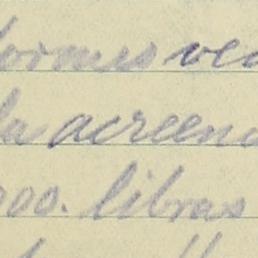 formes ved
la acreend
000. libras